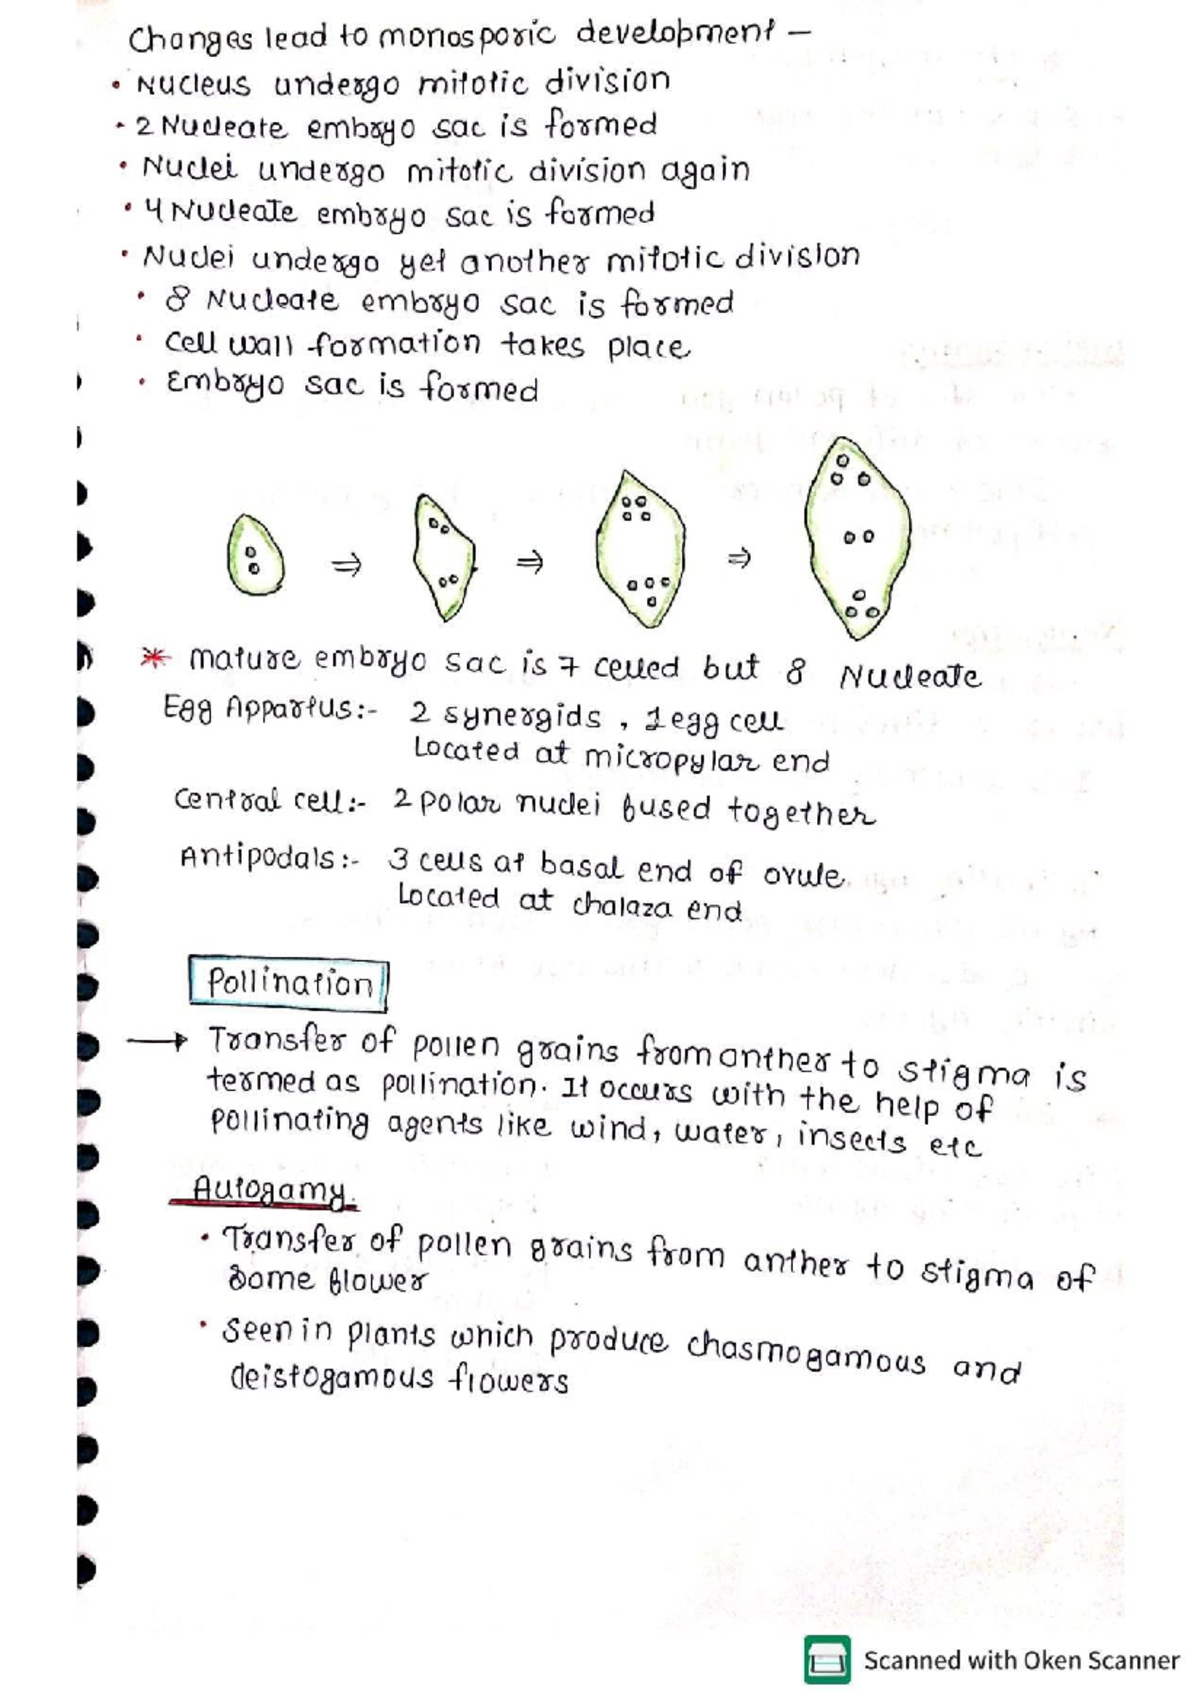 Changes lead to monosporic development –
• Nucleus undergo mitotic division
• 2 Nucleate embryo sac is formed
• Nuclei undergo mitotic division again
• 4 Nucleate embryo sac is formed
• Nuclei undergo yet another mitotic division
• 8 Nucleate embryo sac is formed
• Cell wall formation takes place
• Embryo sac is formed
⇒ ⇒ ⇒
* mature embryo sac is 7 celled but 8 Nucleate
Egg Appartus:- 2 synergids, 1 egg cell
Located at micropylar end
Central cell:- 2 polar nuclei fused together
Antipodals:- 3 cells at basal end of ovule.
Located at chalaza end
Pollination
→ Transfer of pollen grains from anther to stigma is
termed as pollination. It occurs with the help of
pollinating agents like wind, water, insects etc
Autogamy.
• Transfer of pollen grains from anther to stigma of
Same flower
• Seen in plants which produce chasmogamous and
cleistogamous flowers
Scanned with Oken Scanner